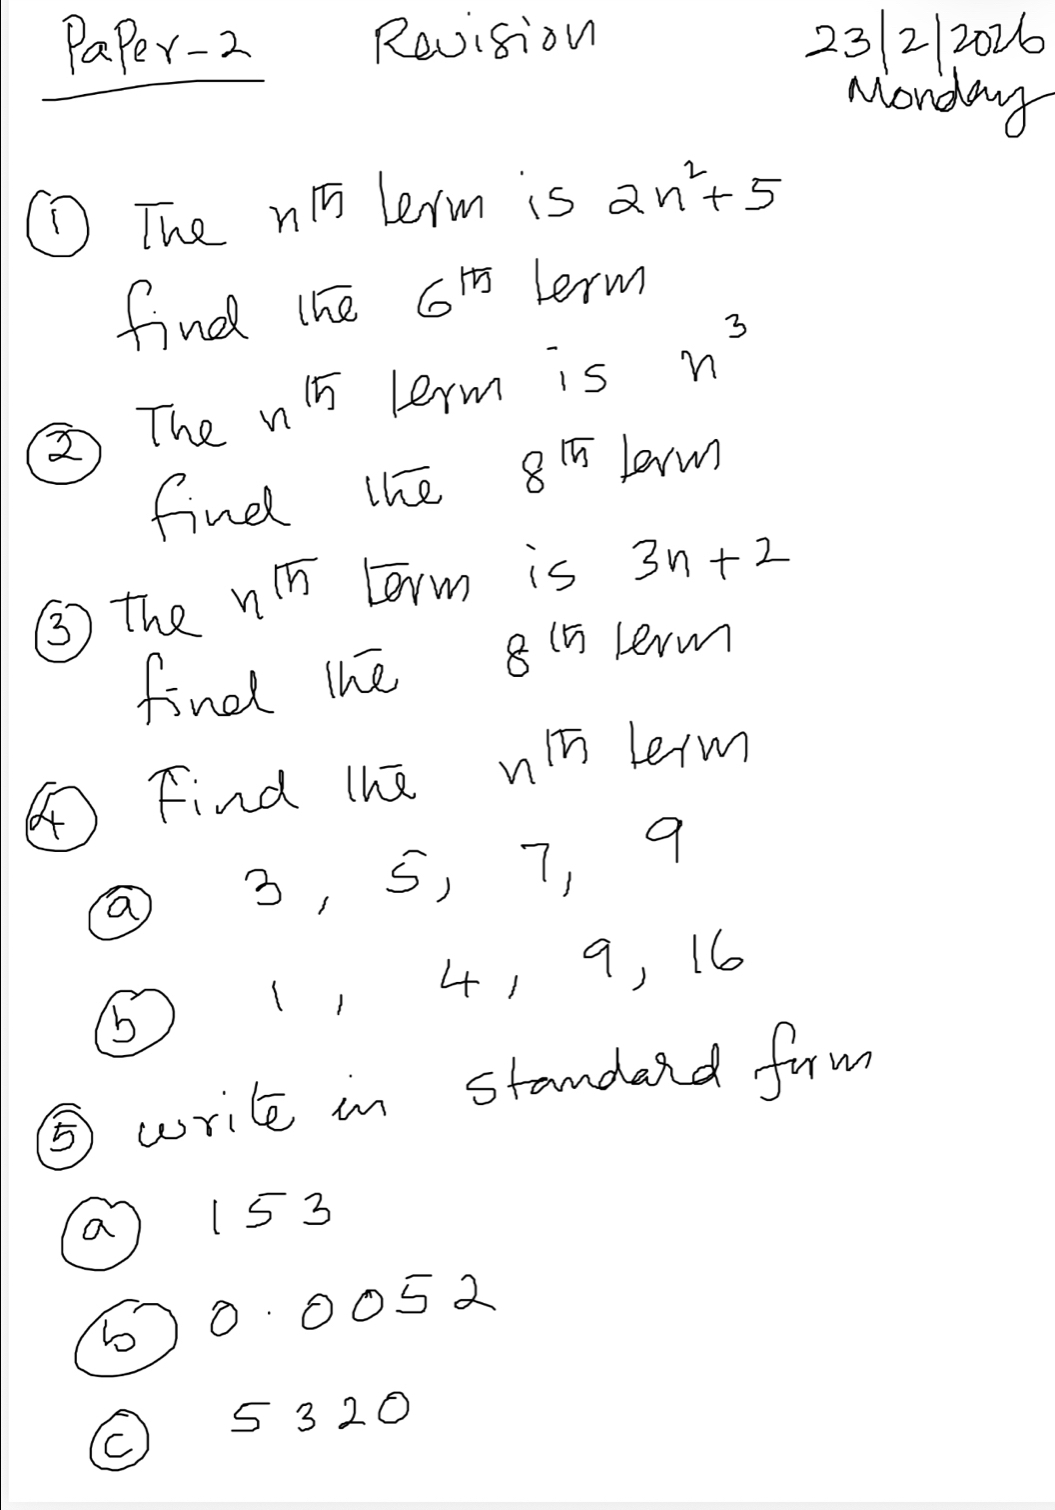 Paper-2 Revision 23/2/2026
Monday
① The nth term is 2n²+5
find the 6th term
② The nth term is n³
find the 8th term
③ the nth term is 3n+2
find the 8th term
④ Find the nth term
ⓐ 3, 5, 7, 9
ⓑ 1, 4, 9, 16
⑤ write in standard form
ⓐ 153
ⓑ 0.0052
ⓒ 5320